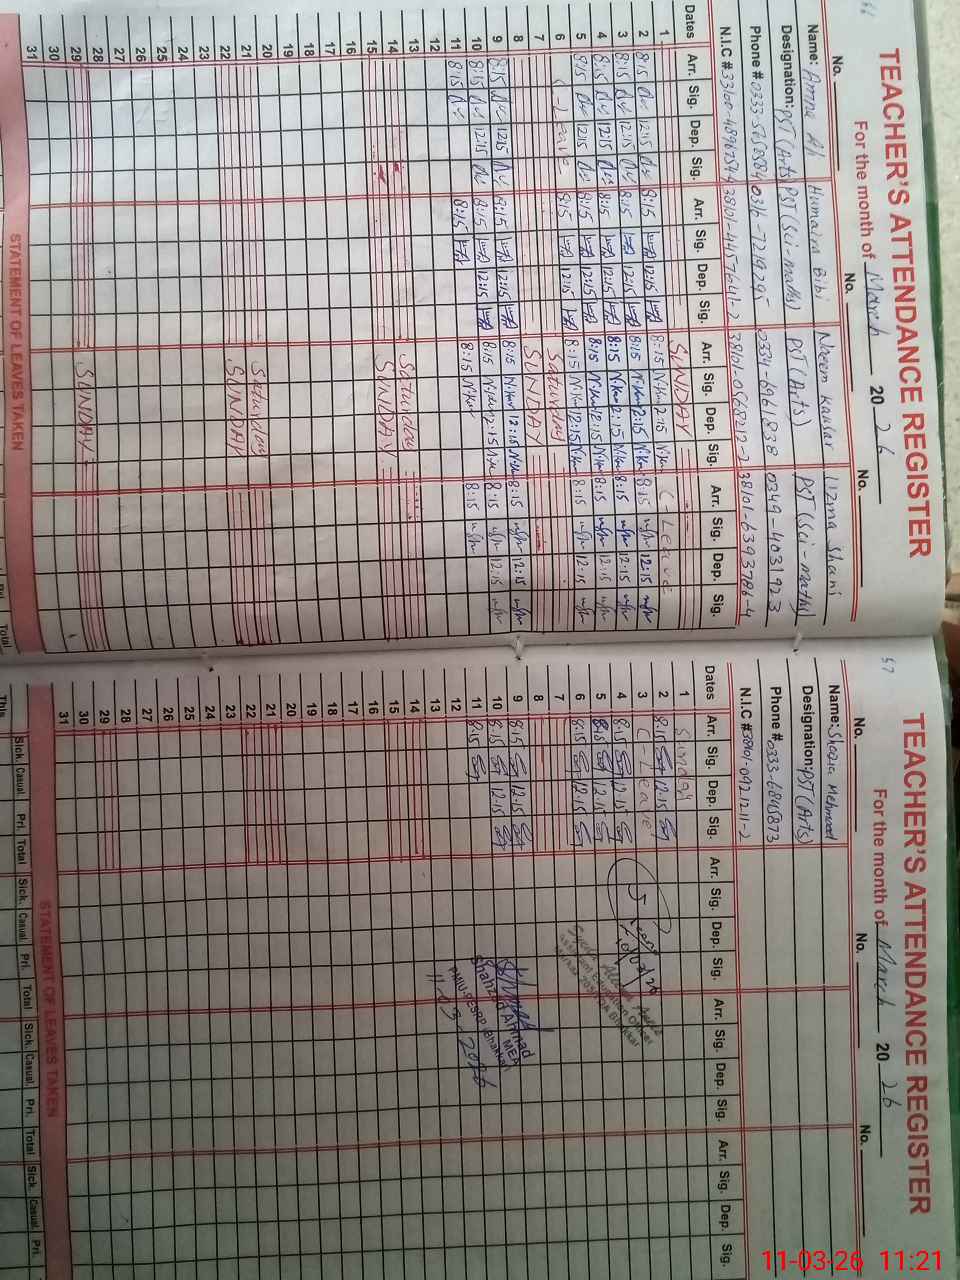 66
TEACHER'S ATTENDANCE REGISTER
For the month of March 2026
No. No. No.
Name: Amna Ali Humaira Bibi Naeem Kausar Uzma Shani
Designation: PST (Arts) PST (Sci-maths) PST (Arts) PST (Sci-maths)
Phone # 0333-5658584 0316-7219295 0334-6961838 0349-4031923
N.I.C # 38101-0568212- 38101-6393786-4
Dates Arr. Sig. Dep. Sig. Arr. Sig. Dep. Sig. Arr. Sig. Dep. Sig. Arr. Sig. Dep. Sig.
1 SUNDAY
2 8:15 12:15 8:15 12:15 8:15 2:15 C-Leave
3 8:15 12:15 8:15 12:15 8:15 12:15 8:15 12:15
4 8:15 12:15 8:15 12:15 8:15 2:15 8:15 12:15
5 8:15 12:15 8:15 12:15 8:15 12:15 8:15 12:15
6 C-Leave 8:15 12:15 8:15 12:15 8:15 12:15
7 Saturday
8 SUNDAY
9 8:15 12:15 8:15 12:15 8:15 12:15 8:15 12:15
10 8:15 12:15 8:15 12:15 8:15 2:15 8:15 12:15
11 8:15 8:15 8:15 8:15
12
13
14 Saturday
15 SUNDAY
16
17
18
19
20
21 Saturday
22 SUNDAY
23
24
25
26
27
28
29 SUNDAY
30
31
STATEMENT OF LEAVES TAKEN
Pri. Total
57
TEACHER'S ATTENDANCE REGISTER
For the month of March 2026
No. No. No.
Name: Shazia Mehmood
Designation: PST (Arts)
Phone # 0333-6845873
N.I.C # 38101-0921211-2
Dates Arr. Sig. Dep. Sig. Arr. Sig. Dep. Sig. Arr. Sig. Dep. Sig. Arr. Sig. Dep. Sig.
1 Sunday
2 8:15 12:15
3 C-Leave
4 8:15 12:15
5 8:15 12:15
6 8:15 12:15
7
8
9 8:15 12:15
10 8:15 12:15
11 8:15
12
13
14
15
16
17
18
19
20
21
22
23
24
25
26
27
28
29
30
31
Assistant Education Officer
Bhakkar
Shahzad Ahmad
MEA
PMIU-PESRP Bhakkar
11-03-2026
STATEMENT OF LEAVES TAKEN
This Sick. Casual. Pri. Total Sick. Casual. Pri. Total Sick. Casual. Pri. Total Sick. Casual. Pri.
11-03-26 11:21